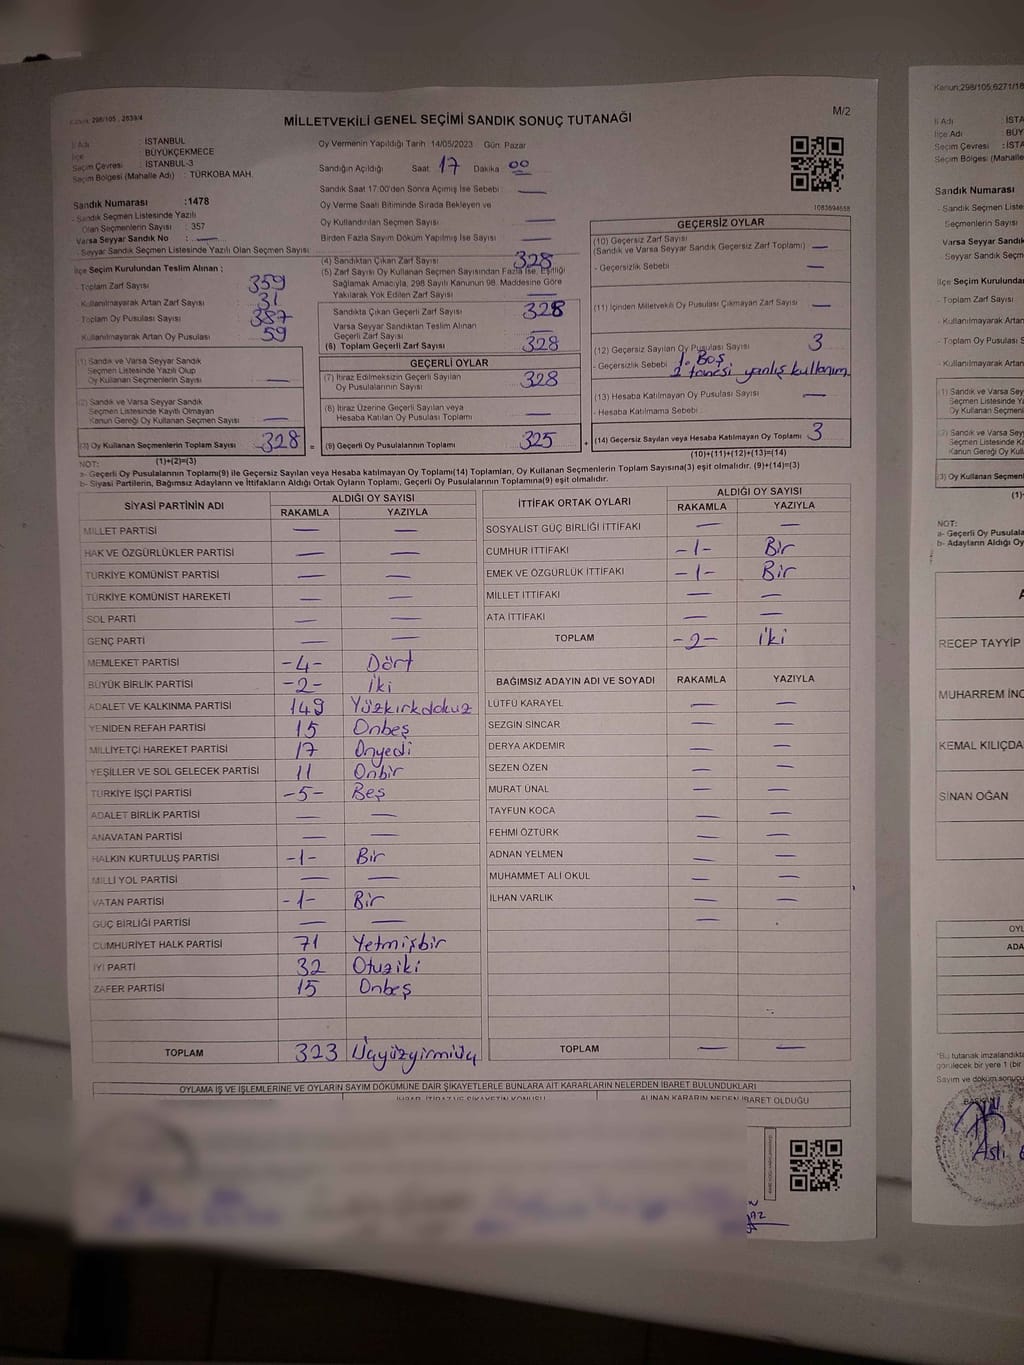 Kanun: 298/105, 2839/4
M/2
MİLLETVEKİLİ GENEL SEÇİMİ SANDIK SONUÇ TUTANAĞI
İl Adı : İSTANBUL
İlçe : BÜYÜKÇEKMECE
Seçim Çevresi : İSTANBUL-3
Seçim Bölgesi (Mahalle Adı) : TÜRKOBA MAH.
Sandık Numarası :1478
- Sandık Seçmen Listesinde Yazılı
Olan Seçmenlerin Sayısı : 357
Varsa Seyyar Sandık No : —
- Seyyar Sandık Seçmen Listesinde Yazılı Olan Seçmen Sayısı
Oy Vermenin Yapıldığı Tarih 14/05/2023 Gün Pazar
Sandığın Açıldığı Saat 17 Dakika 00
Sandık Saat 17:00'den Sonra Açımış İse Sebebi —
Oy Verme Saati Bitiminde Sırada Bekleyen ve
Oy Kullandırılan Seçmen Sayısı —
Birden Fazla Sayım Döküm Yapılmış İse Sayısı —
1083694658
İlçe Seçim Kurulundan Teslim Alınan :
- Toplam Zarf Sayısı 359
- Kullanılmayarak Artan Zarf Sayısı 31
- Toplam Oy Pusulası Sayısı 387
- Kullanılmayarak Artan Oy Pusulası 59
(1) Sandık ve Varsa Seyyar Sandık
Seçmen Listesinde Yazılı Olup
Oy Kullanan Seçmenlerin Sayısı —
(2) Sandık ve Varsa Seyyar Sandık
Seçmen Listesinde Kayıtlı Olmayan
Kanun Gereği Oy Kullanan Seçmen Sayısı —
(3) Oy Kullanan Seçmenlerin Toplam Sayısı 328 =
(1)+(2)=(3)
(4) Sandıktan Çıkan Zarf Sayısı 328
(5) Zarf Sayısı Oy Kullanan Seçmen Sayısından Fazla İse, Eşitliği
Sağlamak Amacıyla, 298 Sayılı Kanunun 98. Maddesine Göre
Yakılarak Yok Edilen Zarf Sayısı —
Sandıkta Çıkan Geçerli Zarf Sayısı 328
Varsa Seyyar Sandıktan Teslim Alınan
Geçerli Zarf Sayısı —
(6) Toplam Geçerli Zarf Sayısı 328
GEÇERLİ OYLAR
(7) İtiraz Edilmeksizin Geçerli Sayılan
Oy Pusulalarının Sayısı 328
(8) İtiraz Üzerine Geçerli Sayılan veya
Hesaba Katılan Oy Pusulası Toplamı —
(9) Geçerli Oy Pusulalarının Toplamı 325 +
GEÇERSİZ OYLAR
(10) Geçersiz Zarf Sayısı
(Sandık ve Varsa Seyyar Sandık Geçersiz Zarf Toplamı) —
- Geçersizlik Sebebi —
(11) İçinden Milletvekili Oy Pusulası Çıkmayan Zarf Sayısı —
(12) Geçersiz Sayılan Oy Pusulası Sayısı 3
- Geçersizlik Sebebi 1. Boş
2 tanesi yanlış kullanım
(13) Hesaba Katılmayan Oy Pusulası Sayısı —
- Hesaba Katılmama Sebebi
(14) Geçersiz Sayılan veya Hesaba Katılmayan Oy Toplamı 3
(10)+(11)+(12)+(13)=(14)
NOT:
a- Geçerli Oy Pusulalarının Toplamı(9) ile Geçersiz Sayılan veya Hesaba katılmayan Oy Toplamı(14) Toplamları, Oy Kullanan Seçmenlerin Toplam Sayısına(3) eşit olmalıdır. (9)+(14)=(3)
b- Siyasi Partilerin, Bağımsız Adayların ve İttifakların Aldığı Ortak Oyların Toplamı, Geçerli Oy Pusulalarının Toplamına(9) eşit olmalıdır.
SİYASİ PARTİNİN ADI ALDIĞI OY SAYISI
RAKAMLA YAZIYLA
MİLLET PARTİSİ — —
HAK VE ÖZGÜRLÜKLER PARTİSİ — —
TÜRKİYE KOMÜNİST PARTİSİ — —
TÜRKİYE KOMÜNİST HAREKETİ — —
SOL PARTİ — —
GENÇ PARTİ — —
MEMLEKET PARTİSİ -4- Dört
BÜYÜK BİRLİK PARTİSİ -2- iki
ADALET VE KALKINMA PARTİSİ 149 Yüzkırkdokuz
YENİDEN REFAH PARTİSİ 15 Onbeş
MİLLİYETÇİ HAREKET PARTİSİ 17 Onyedi
YEŞİLLER VE SOL GELECEK PARTİSİ 11 Onbir
TÜRKİYE İŞÇİ PARTİSİ -5- Beş
ADALET BİRLİK PARTİSİ — —
ANAVATAN PARTİSİ — —
HALKIN KURTULUŞ PARTİSİ -1- Bir
MİLLİ YOL PARTİSİ — —
VATAN PARTİSİ -1- Bir
GÜÇ BİRLİĞİ PARTİSİ — —
CUMHURİYET HALK PARTİSİ 71 Yetmişbir
İYİ PARTİ 32 Otuziki
ZAFER PARTİSİ 15 Onbeş
TOPLAM 323 Üçyüzyirmiüç
İTTİFAK ORTAK OYLARI ALDIĞI OY SAYISI
RAKAMLA YAZIYLA
SOSYALİST GÜÇ BİRLİĞİ İTTİFAKI — —
CUMHUR İTTİFAKI -1- Bir
EMEK VE ÖZGÜRLÜK İTTİFAKI -1- Bir
MİLLET İTTİFAKI — —
ATA İTTİFAKI — —
TOPLAM -2- iki
BAĞIMSIZ ADAYIN ADI VE SOYADI RAKAMLA YAZIYLA
LÜTFÜ KARAYEL — —
SEZGİN SİNCAR — —
DERYA AKDEMİR — —
SEZEN ÖZEN — —
MURAT ÜNAL — —
TAYFUN KOCA — —
FEHMİ ÖZTÜRK — —
ADNAN YELMEN — —
MUHAMMET ALİ OKUL — —
İLHAN VARLIK — —
TOPLAM — —
OYLAMA İŞ VE İŞLEMLERİNE VE OYLARIN SAYIM DÖKÜMÜNE DAİR ŞİKAYETLERLE BUNLARA AİT KARARLARIN NELERDEN İBARET BULUNDUKLARI
İHBAR, İTİRAZ VE ŞİKAYETİN KONUSU ALINAN KARARIN NEDEN İBARET OLDUĞU
Kanun:298/105;6271/18
İl Adı : İSTA
İlçe Adı : BÜY
Seçim Çevresi : İSTA
Seçim Bölgesi (Mahalle
Sandık Numarası
- Sandık Seçmen Liste
Seçmenlerin Sayısı
Varsa Seyyar Sandık
- Seyyar Sandık Seçmen
İlçe Seçim Kurulundan
- Toplam Zarf Sayısı
- Kullanılmayarak Artan
- Toplam Oy Pusulası S
- Kullanılmayarak Artan
(1) Sandık ve Varsa Sey
Seçmen Listesinde Ya
Oy Kullanan Seçmenl
(2) Sandık ve Varsa Sey
Seçmen Listesinde Ka
Kanun Gereği Oy Kulla
(3) Oy Kullanan Seçmenl
(1)+
NOT:
a- Geçerli Oy Pusulala
b- Adayların Aldığı Oy
A
RECEP TAYYİP
MUHARREM İNC
KEMAL KILIÇDA
SİNAN OĞAN
OYL
ADA
*Bu tutanak imzalandıkta
görülecek bir yere 1 (bir
Sayım ve döküm sonucu
BAŞKAN
Aslı